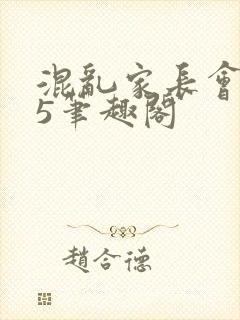 混亂家長會
5筆趣閣
趙合德